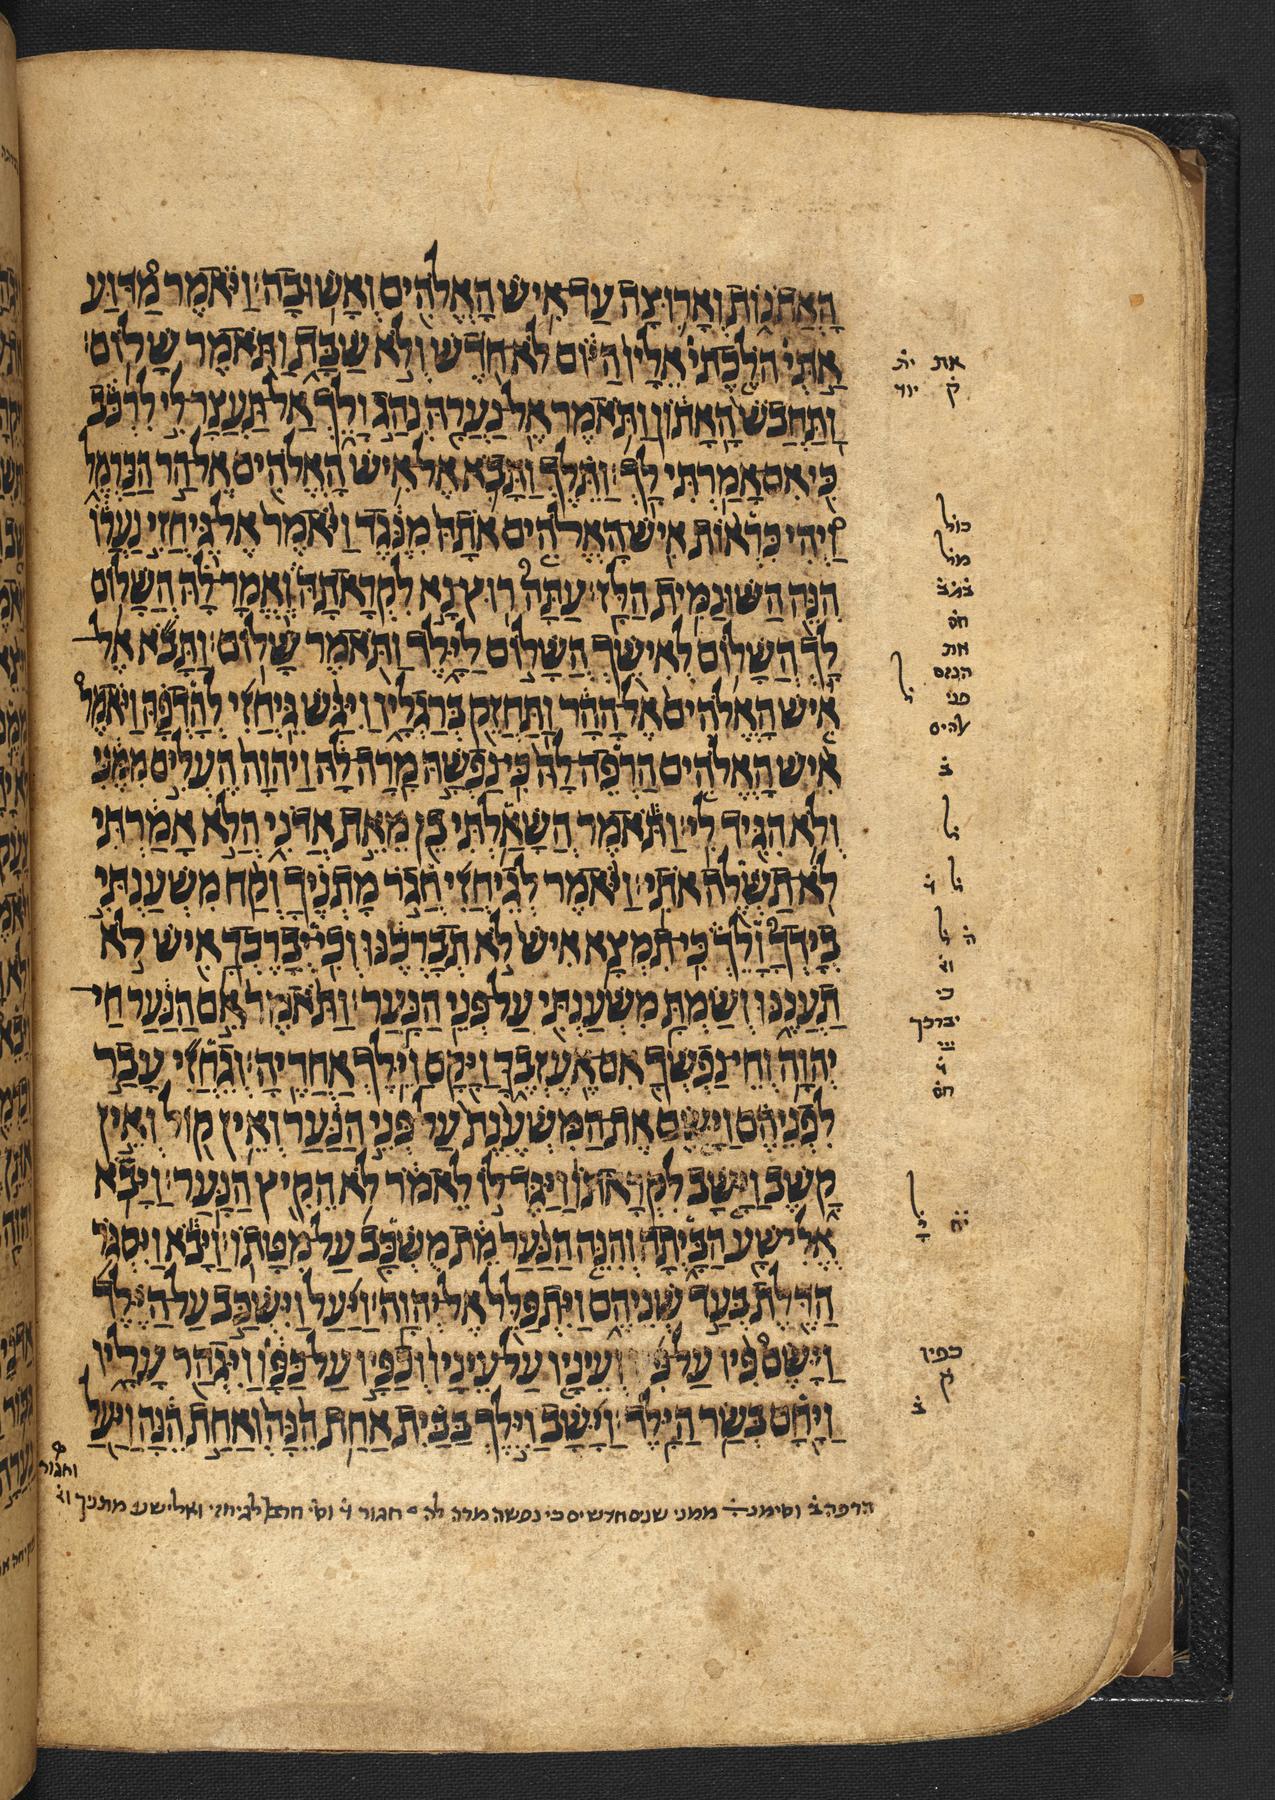 הָאֲתֹנוֹת וְאָרוּצָה עַד אִישׁ הָאֱלֹהִים וְאָשׁוּבָה׃ וַיֹּאמֶר מַדּוּעַ
אַתְּי הֹלֶכְתְּי אֵלָיו הַיּוֹם לֹא חֹדֶשׁ וְלֹא שַׁבָּת וַתֹּאמֶר שָׁלוֹם׃
וַתַּחֲבֹשׁ הָאָתוֹן וַתֹּאמֶר אֶל נַעֲרָהּ נְהַג וָלֵךְ אַל תַּעֲצָר לִי לִרְכֹּב
כִּי אִם אָמַרְתִּי לָךְ׃ וַתֵּלֶךְ וַתָּבֹא אֶל אִישׁ הָאֱלֹהִים אֶל הַר הַכַּרְמֶל
וַיְהִי כִּרְאוֹת אִישׁ הָאֱלֹהִים אֹתָהּ מִנֶּגֶד וַיֹּאמֶר אֶל גֵּיחֲזִי נַעֲרוֹ
הִנֵּה הַשּׁוּנַמִּית הַלָּז׃ עַתָּה רוּץ נָא לִקְרָאתָהּ וֶאֱמָר לָהּ הֲשָׁלוֹם
לָךְ הֲשָׁלוֹם לְאִישֵׁךְ הֲשָׁלוֹם לַיָּלֶד וַתֹּאמֶר שָׁלוֹם׃ וַתָּבֹא אֶל
אִישׁ הָאֱלֹהִים אֶל הָהָר וַתַּחֲזֵק בְּרַגְלָיו וַיִּגַּשׁ גֵּיחֲזִי לְהָדְפָהּ וַיֹּאמֶר
אִישׁ הָאֱלֹהִים הַרְפֵּה לָהּ כִּי נַפְשָׁהּ מָרָה לָהּ וַיהוָה הֶעְלִים מִמֶּנִּי
וְלֹא הִגִּיד לִי׃ וַתֹּאמֶר הֲשָׁאַלְתִּי בֵן מֵאֵת אֲדֹנִי הֲלֹא אָמַרְתִּי
לֹא תַשְׁלֶה אֹתִי׃ וַיֹּאמֶר לְגֵיחֲזִי חֲגֹר מָתְנֶיךָ וְקַח מִשְׁעַנְתִּי
בְיָדְךָ וָלֵךְ כִּי תִמְצָא אִישׁ לֹא תְבָרְכֶנּוּ וְכִי יְבָרֶכְךָ אִישׁ לֹא
תַעֲנֶנּוּ וְשַׂמְתָּ מִשְׁעַנְתִּי עַל פְּנֵי הַנָּעַר׃ וַתֹּאמֶר אֵם הַנַּעַר חַי
יְהוָה וְחֵי נַפְשְׁךָ אִם אֶעֶזְבֶךָּ וַיָּקָם וַיֵּלֶךְ אַחֲרֶיהָ׃ וְגֵחֲזִי עָבַר
לִפְנֵיהֶם וַיָּשֶׂם אֶת הַמִּשְׁעֶנֶת עַל פְּנֵי הַנַּעַר וְאֵין קוֹל וְאֵין
קָשֶׁב וַיָּשָׁב לִקְרָאתוֹ וַיַּגֶּד לוֹ לֵאמֹר לֹא הֵקִיץ הַנָּעַר׃ וַיָּבֹא
אֱלִישָׁע הַבָּיְתָה וְהִנֵּה הַנַּעַר מֵת מֻשְׁכָּב עַל מִטָּתוֹ׃ וַיָּבֹא וַיִּסְגֹּר
הַדֶּלֶת בְּעַד שְׁנֵיהֶם וַיִּתְפַּלֵּל אֶל יְהוָה׃ וַיַּעַל וַיִּשְׁכַּב עַל הַיֶּלֶד
וַיָּשֶׂם פִּיו עַל פִּיו וְעֵינָיו עַל עֵינָיו וְכַפָּיו עַל כַּפָּו וַיִּגְהַר עָלָיו
וַיָּחָם בְּשַׂר הַיָּלֶד׃ וַיָּשָׁב וַיֵּלֶךְ בַּבַּיִת אַחַת הֵנָּה וְאַחַת הֵנָּה וַיַּעַל
את ית
ק יוד
חס
את
פני
ב
ל
ל
ל
כי
יברכך
חס
כפיו
ק
ב
הרפה ב וסימנ ממני שנים חדשים כי נפשה מרה לה חגור ו וסי לגיחזי ואלישע מתניך
וחגור